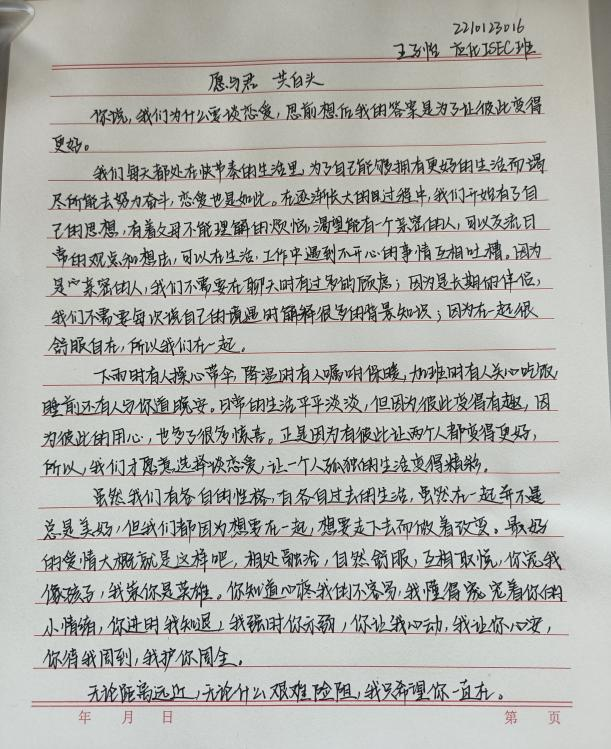 2210123016
王 怡 应化ISEC班
愿与君 共白头
你说,我们为什么要谈恋爱,思前想后我的答案是为了让彼此变得
更好。
我们每天都处在快节奏的生活里,为了自己能够拥有更好的生活而竭
尽所能去努力奋斗,恋爱也是如此。在逐渐长大的过程中,我们开始有了自
己的思想,有着父母不能理解的烦恼,渴望能有一个亲密的人,可以交流日
常的观点和想法,可以在生活,工作中遇到不开心的事情互相吐槽。因为
是亲密的人,我们不需要在聊天时有过多的顾虑;因为是长期的伴侣,
我们不需要每次说自己的境遇时解释很多的背景知识;因为在一起很
舒服自在,所以我们在一起。
下雨时有人操心带伞,降温时有人嘱咐保暖,加班时有人关心吃饭,
睡前还有人与你道晚安。日常的生活平平淡淡,但因为彼此变得有趣,因
为彼此的用心,也多了很多惊喜。正是因为有彼此让两个人都变得更好,
所以,我们才愿意选择谈恋爱,让一个人孤独的生活变得精彩。
虽然我们有各自的性格,有各自过去的生活,虽然在一起并不是
总是美好,但我们都因为想要在一起,想要走下去而做着改变。最好
的爱情大概就是这样吧,相处融洽,自然舒服,互相取悦,你宠我
像孩子,我崇你是英雄。你知道心疼我的不容易,我懂得宠着你的
小情绪,你进时我知退,我强时你示弱,你让我心动,我让你心安,
你待我周到,我护你周全。
无论距离远近,无论什么艰难险阻,我只希望你一直在。
年 月 日 第 页